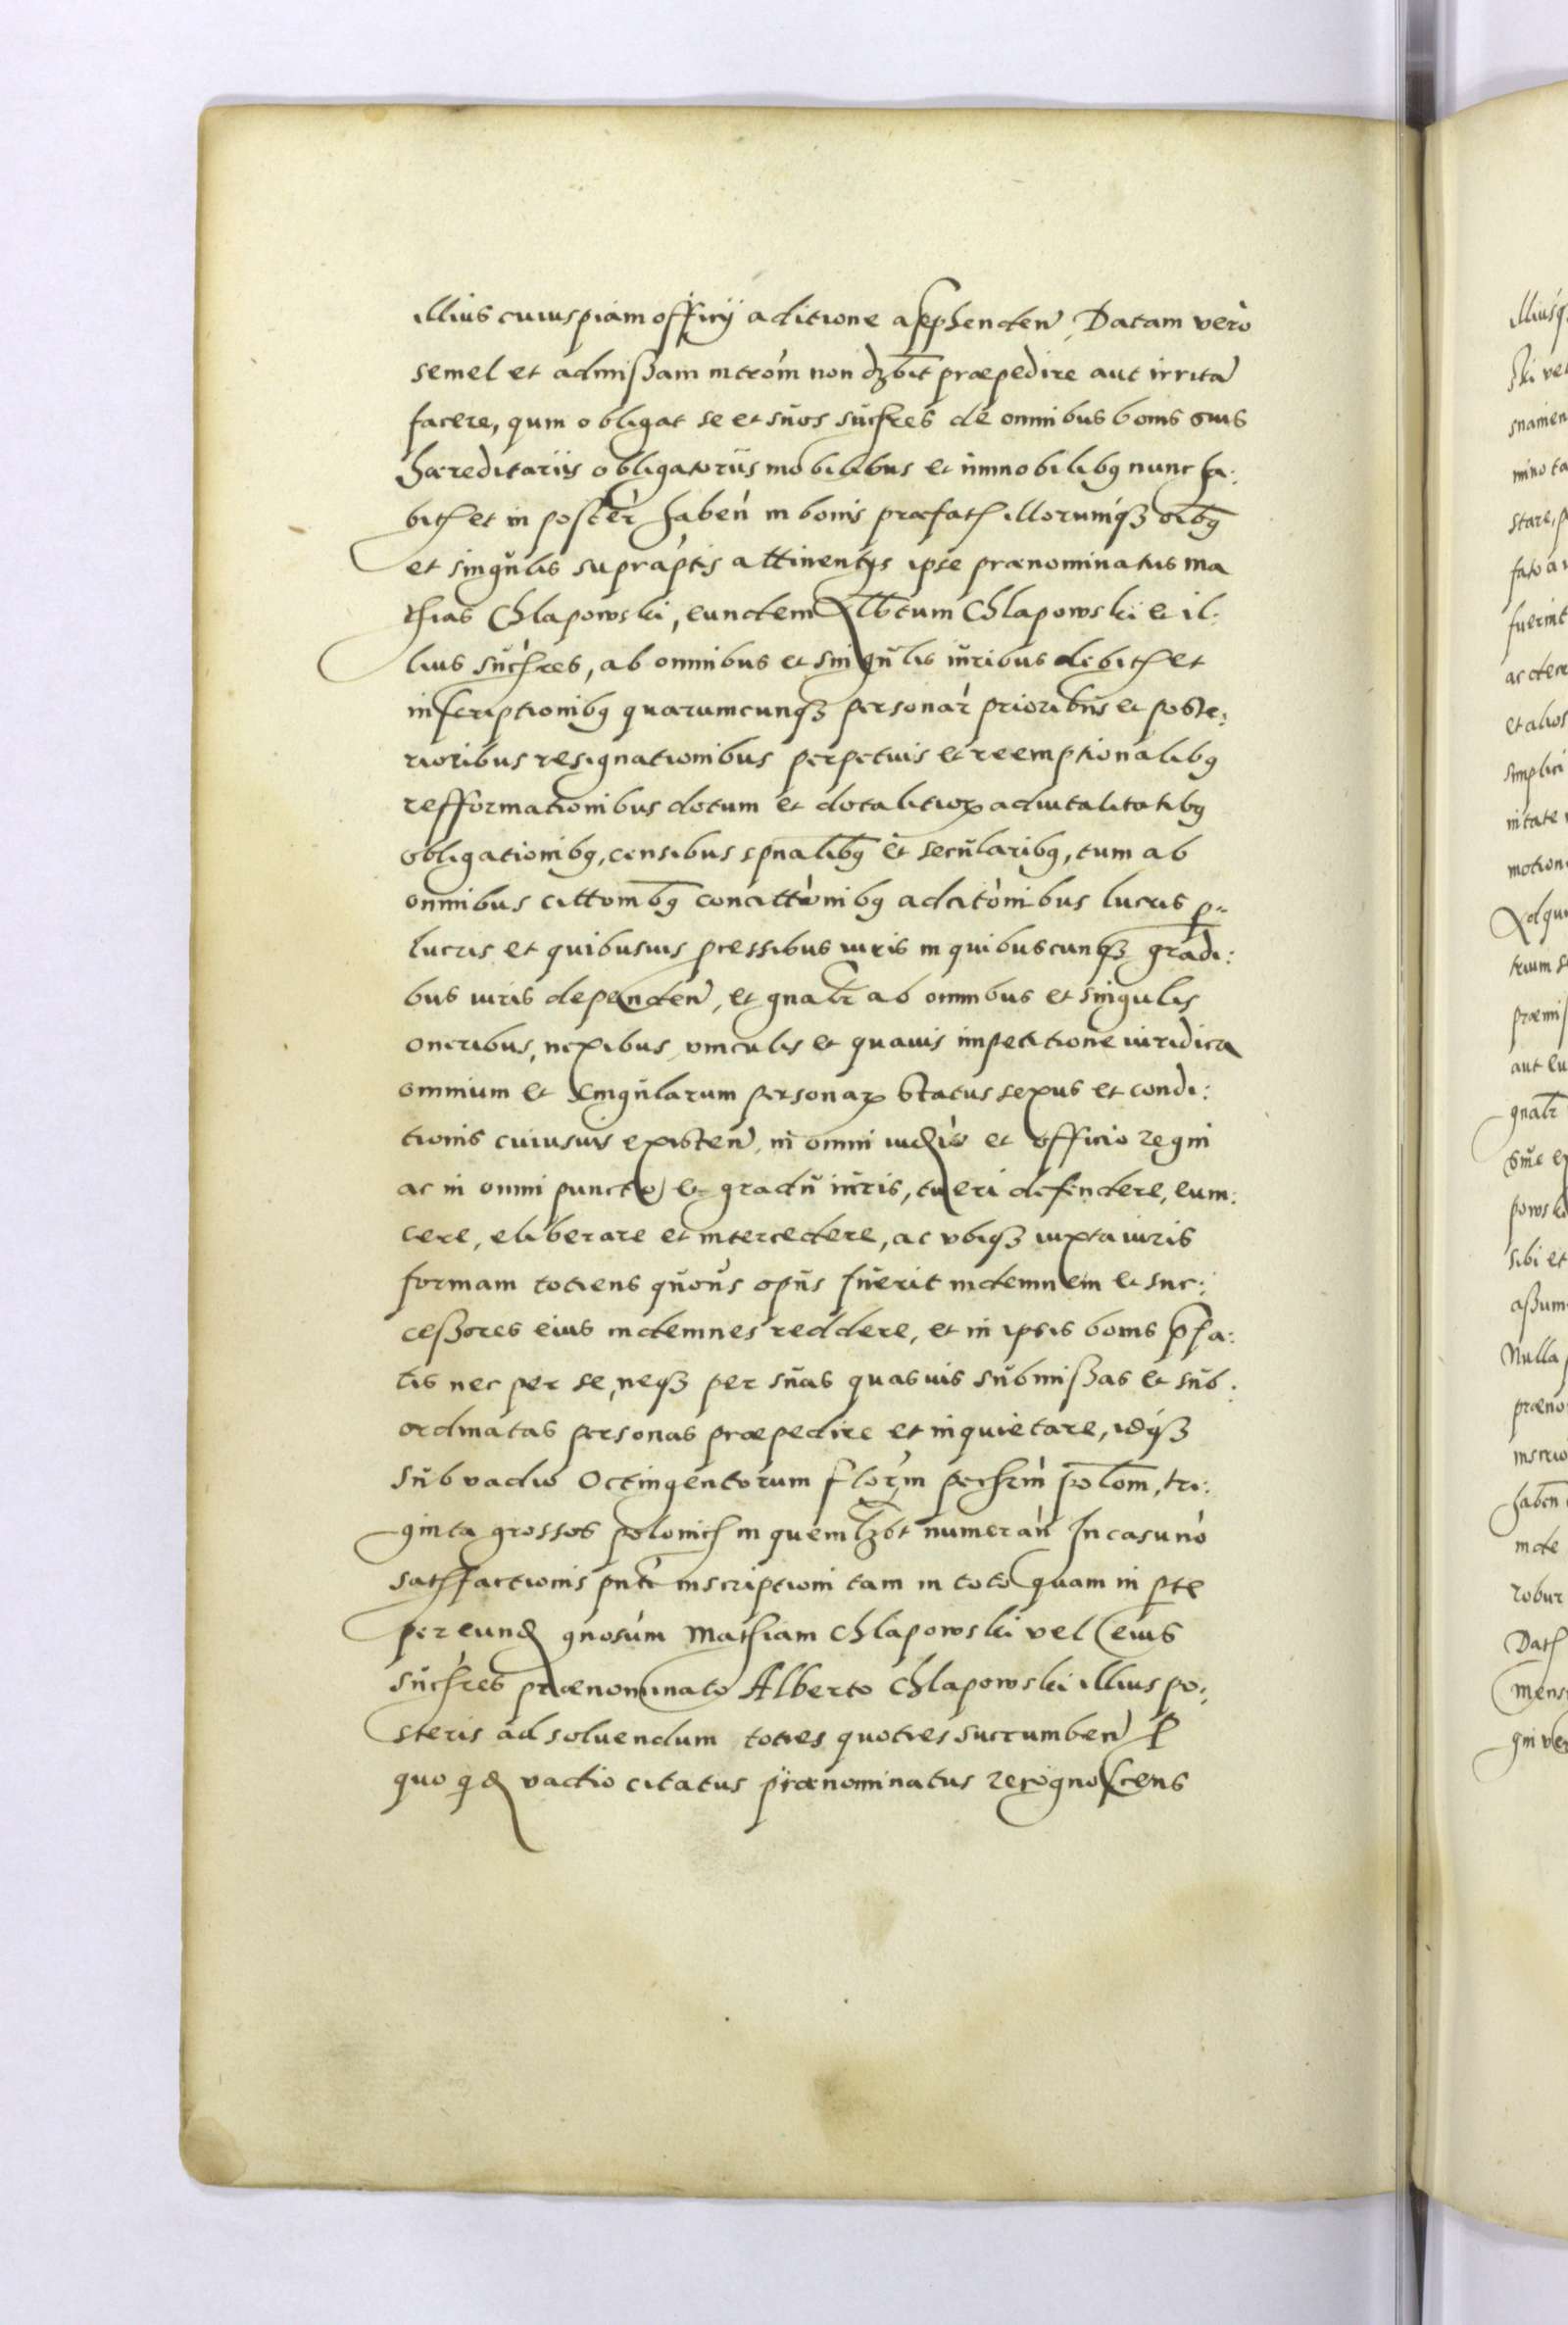 illius cuiuspiam officij aditione apphenden̄, Datam vero
semel et admißam introm̄ non dȝbit præpedire aut irritā
facere, quin obligat se et suos succ̄res de omnibus bonis suis
hæreditariis obligatoriis mobilibus et immobilibꝫ nunc ha:
bitꝭ et in poster̄ haben̄ in bonis præfatꝭ illorumqꝫ oībꝫ
et singulis supraptis attinentijs ipse prænominatus ma
thias Chlapowski, eundem Albtum Chlapowski et il:
lius succ̄res, ab omnibus et singulis iuribus debitꝭ et
inscriptionibꝫ quarumcunqꝫ personar̄ prioribus et poste:
rioribus resignationibus perpetuis et reemptionalibꝫ
refformationibus dotum et dotalitioꝝ aduitalitatibꝫ
obligationibꝫ, censibus spūalibꝫ et secularibꝫ, tum ab
omnibus cittonībꝫ concittōnibꝫ adcitōnibus lucris ꝑ
lucris et quibusuis ꝓcessibus iuris in quibuscunqꝫ gradi:
bus iuris dependen̄, et gnalr̄ ab omnibus et singulis
oneribus, nexibus vinculis et quauis impetitione iuridica
omnium et singularum personaꝝ status sexus et condi:
tionis cuiusuis existen̄, in omni iudīo et officio regni
ac in omni puncto et gradu iuris, tueri defendere, euin:
cere, eliberare et intercedere, ac vbiqꝫ iuxta iuris
formam totiens quōns opus fuerit indemnem et suc:
ceßores eius indemnes reddere, et in ipsis bonis ꝓfa:
tis nec per se, neqꝫ per suas quasuis submißas et sub:
ordinatas personas præpedire et inquietare, idqꝫ
sub vadio Octingentorum flor̄m pec̄hrin̄ polom̄, tri:
ginta grossos polonicꝭ in quemlȝbt numeran̄ In casu nō
satꝭfactionis pn̄ti inscriptioni tam in toto quam in ꝑte
per eundꝫ gnosum Mathiam Chlapowski vel eius
succ̄res prænominato Alberto Chlapowski illius po:
steris ad soluendum toties quoties succumben̄ ꝓ
quo qdꝫ vadio citatus prænominatus recognoscens